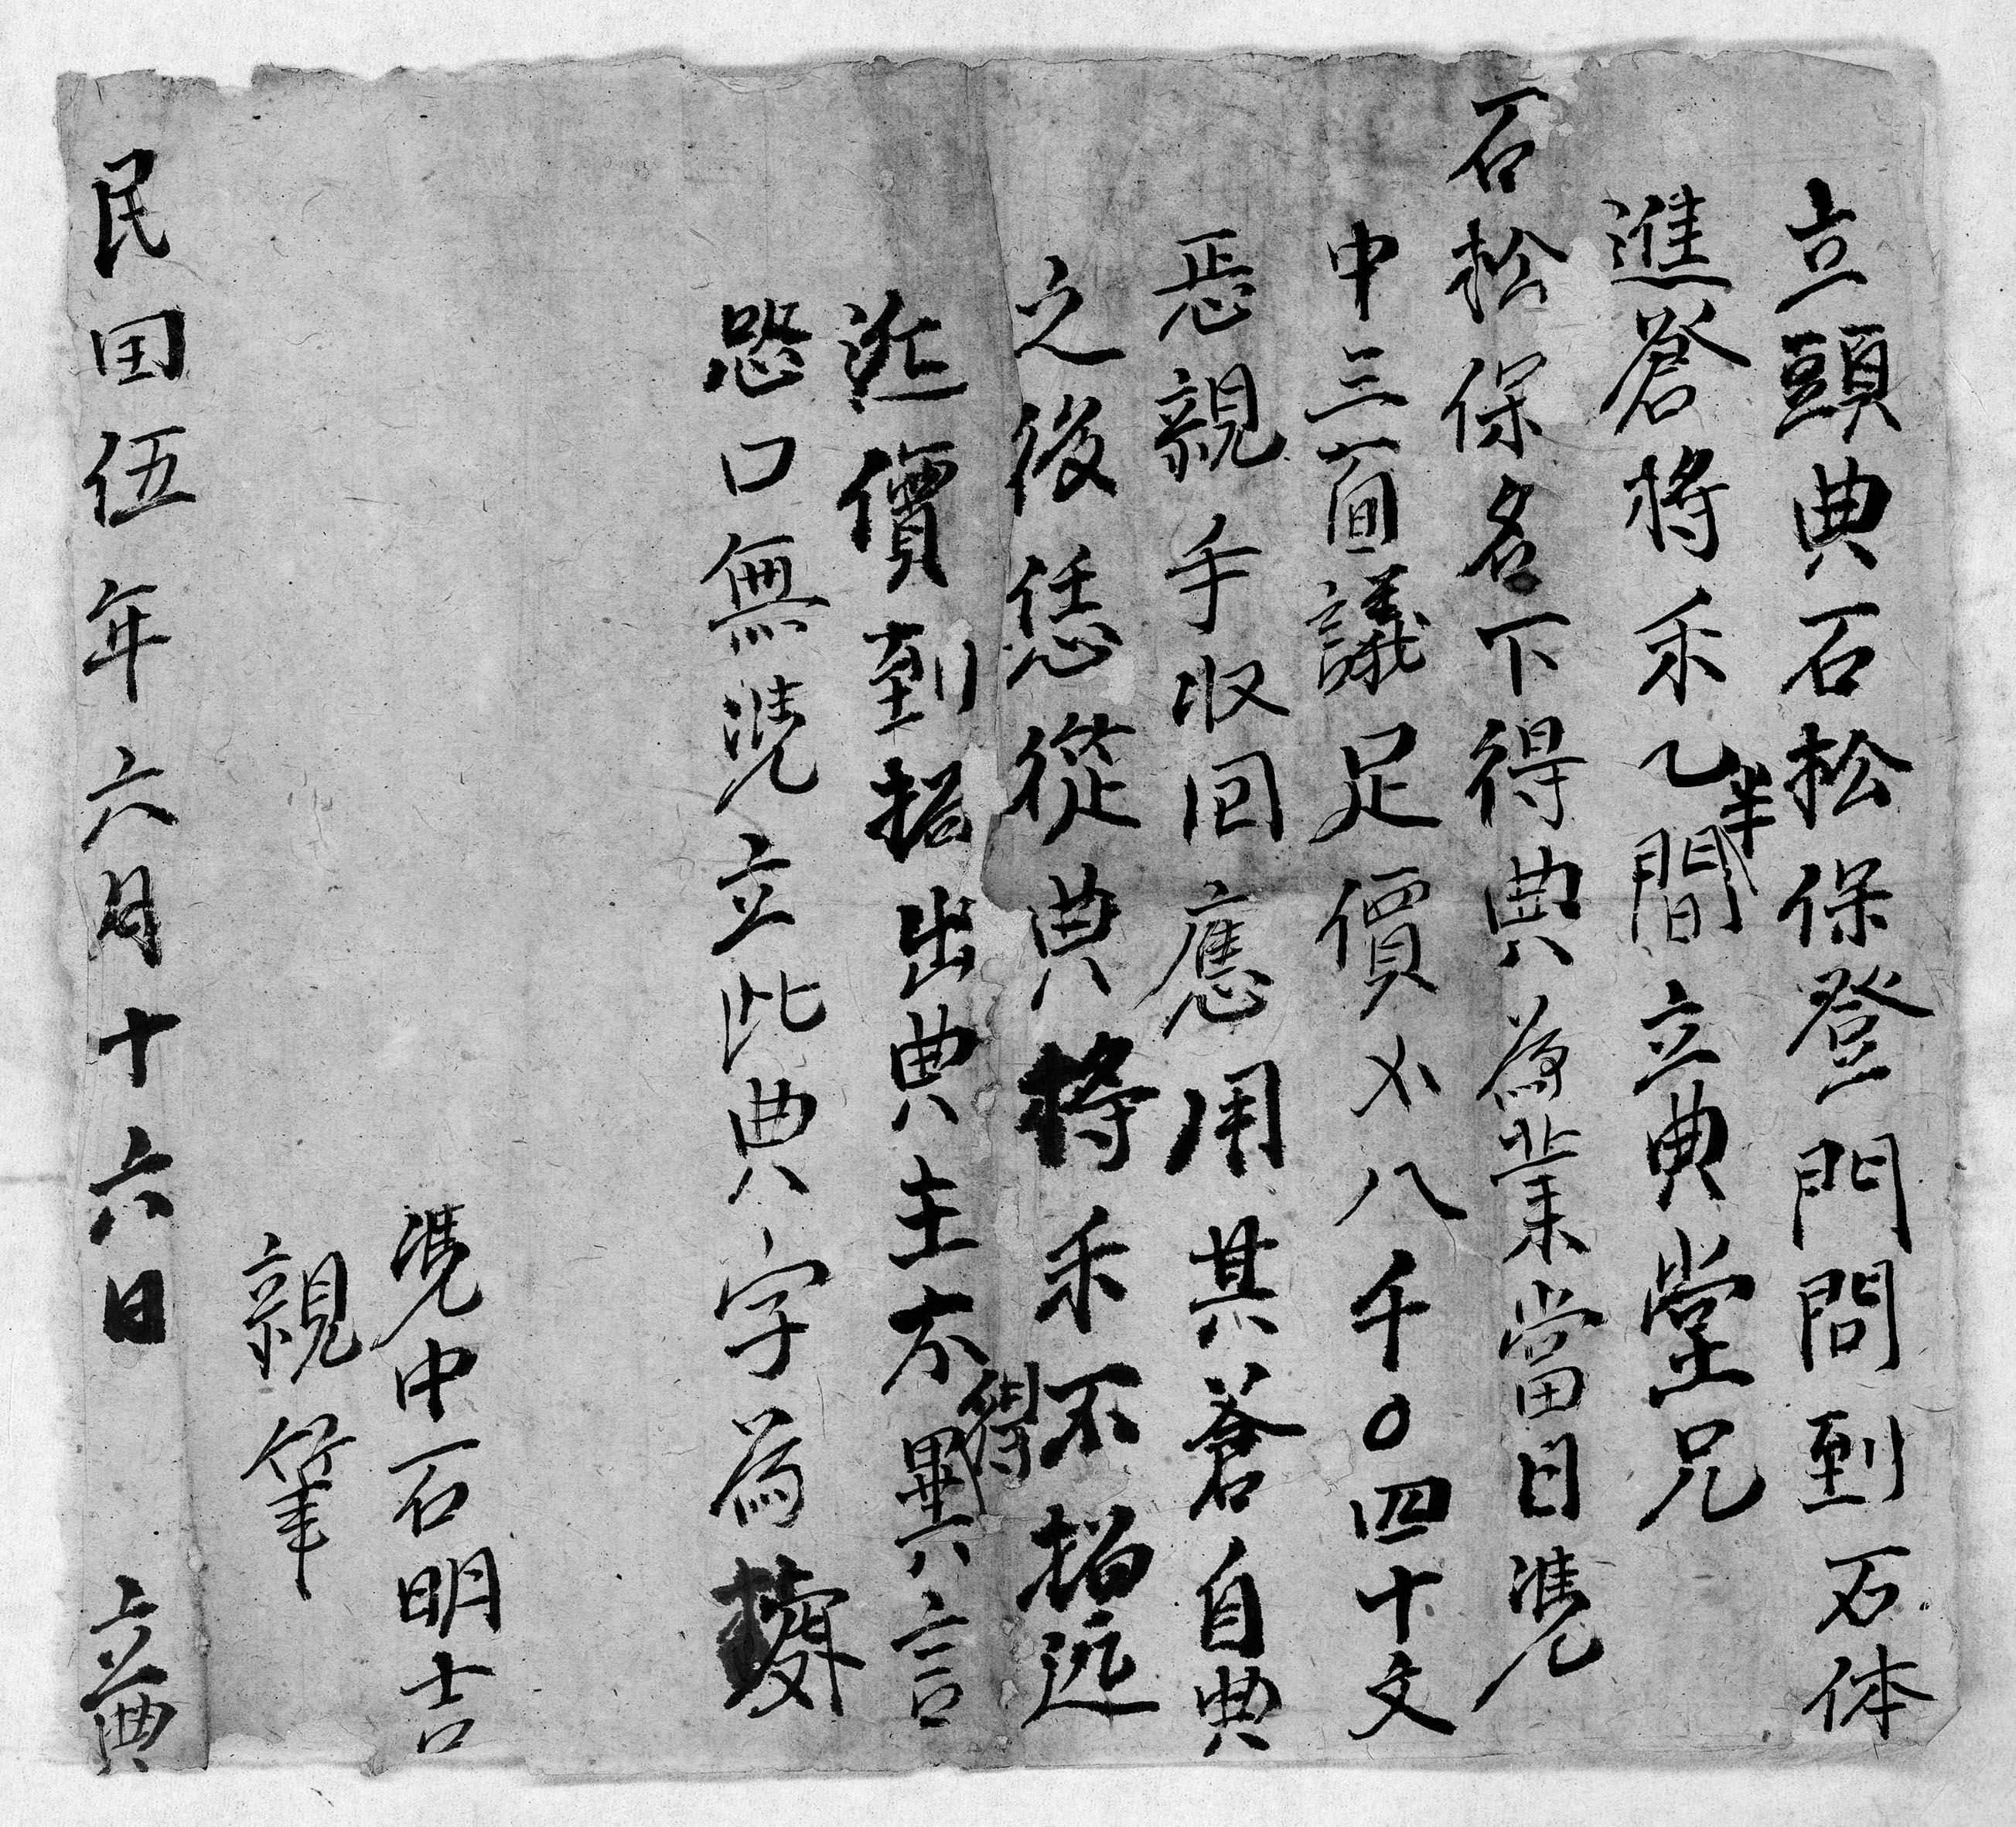 立頭典石松保登門問到石体
進蒼将禾乙半間立典堂兄
石松保名下得典為業當日凴
中三面議足價乂八千〇四十文
㤙親手收回應用其蒼自典
之後恁從典将禾不招远
近價到招出典主不得異言
恐口無凴立此典字為據
凴中石明吉
親筆
民囯伍年六月十六日 立典